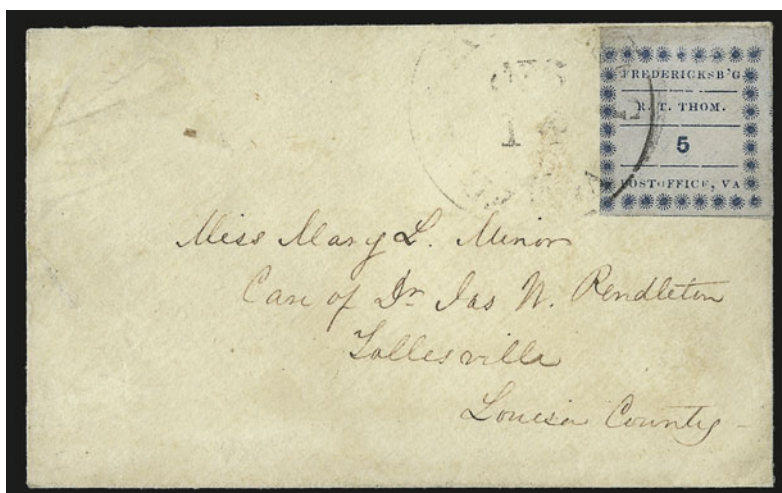 FREDERICKSB'G
R. T. THOM.
5
POSTOFFICE, VA
14
Miss Mary L. Minor
Care of Dr Jas W. Pendleton
Tollesville
Louisa County